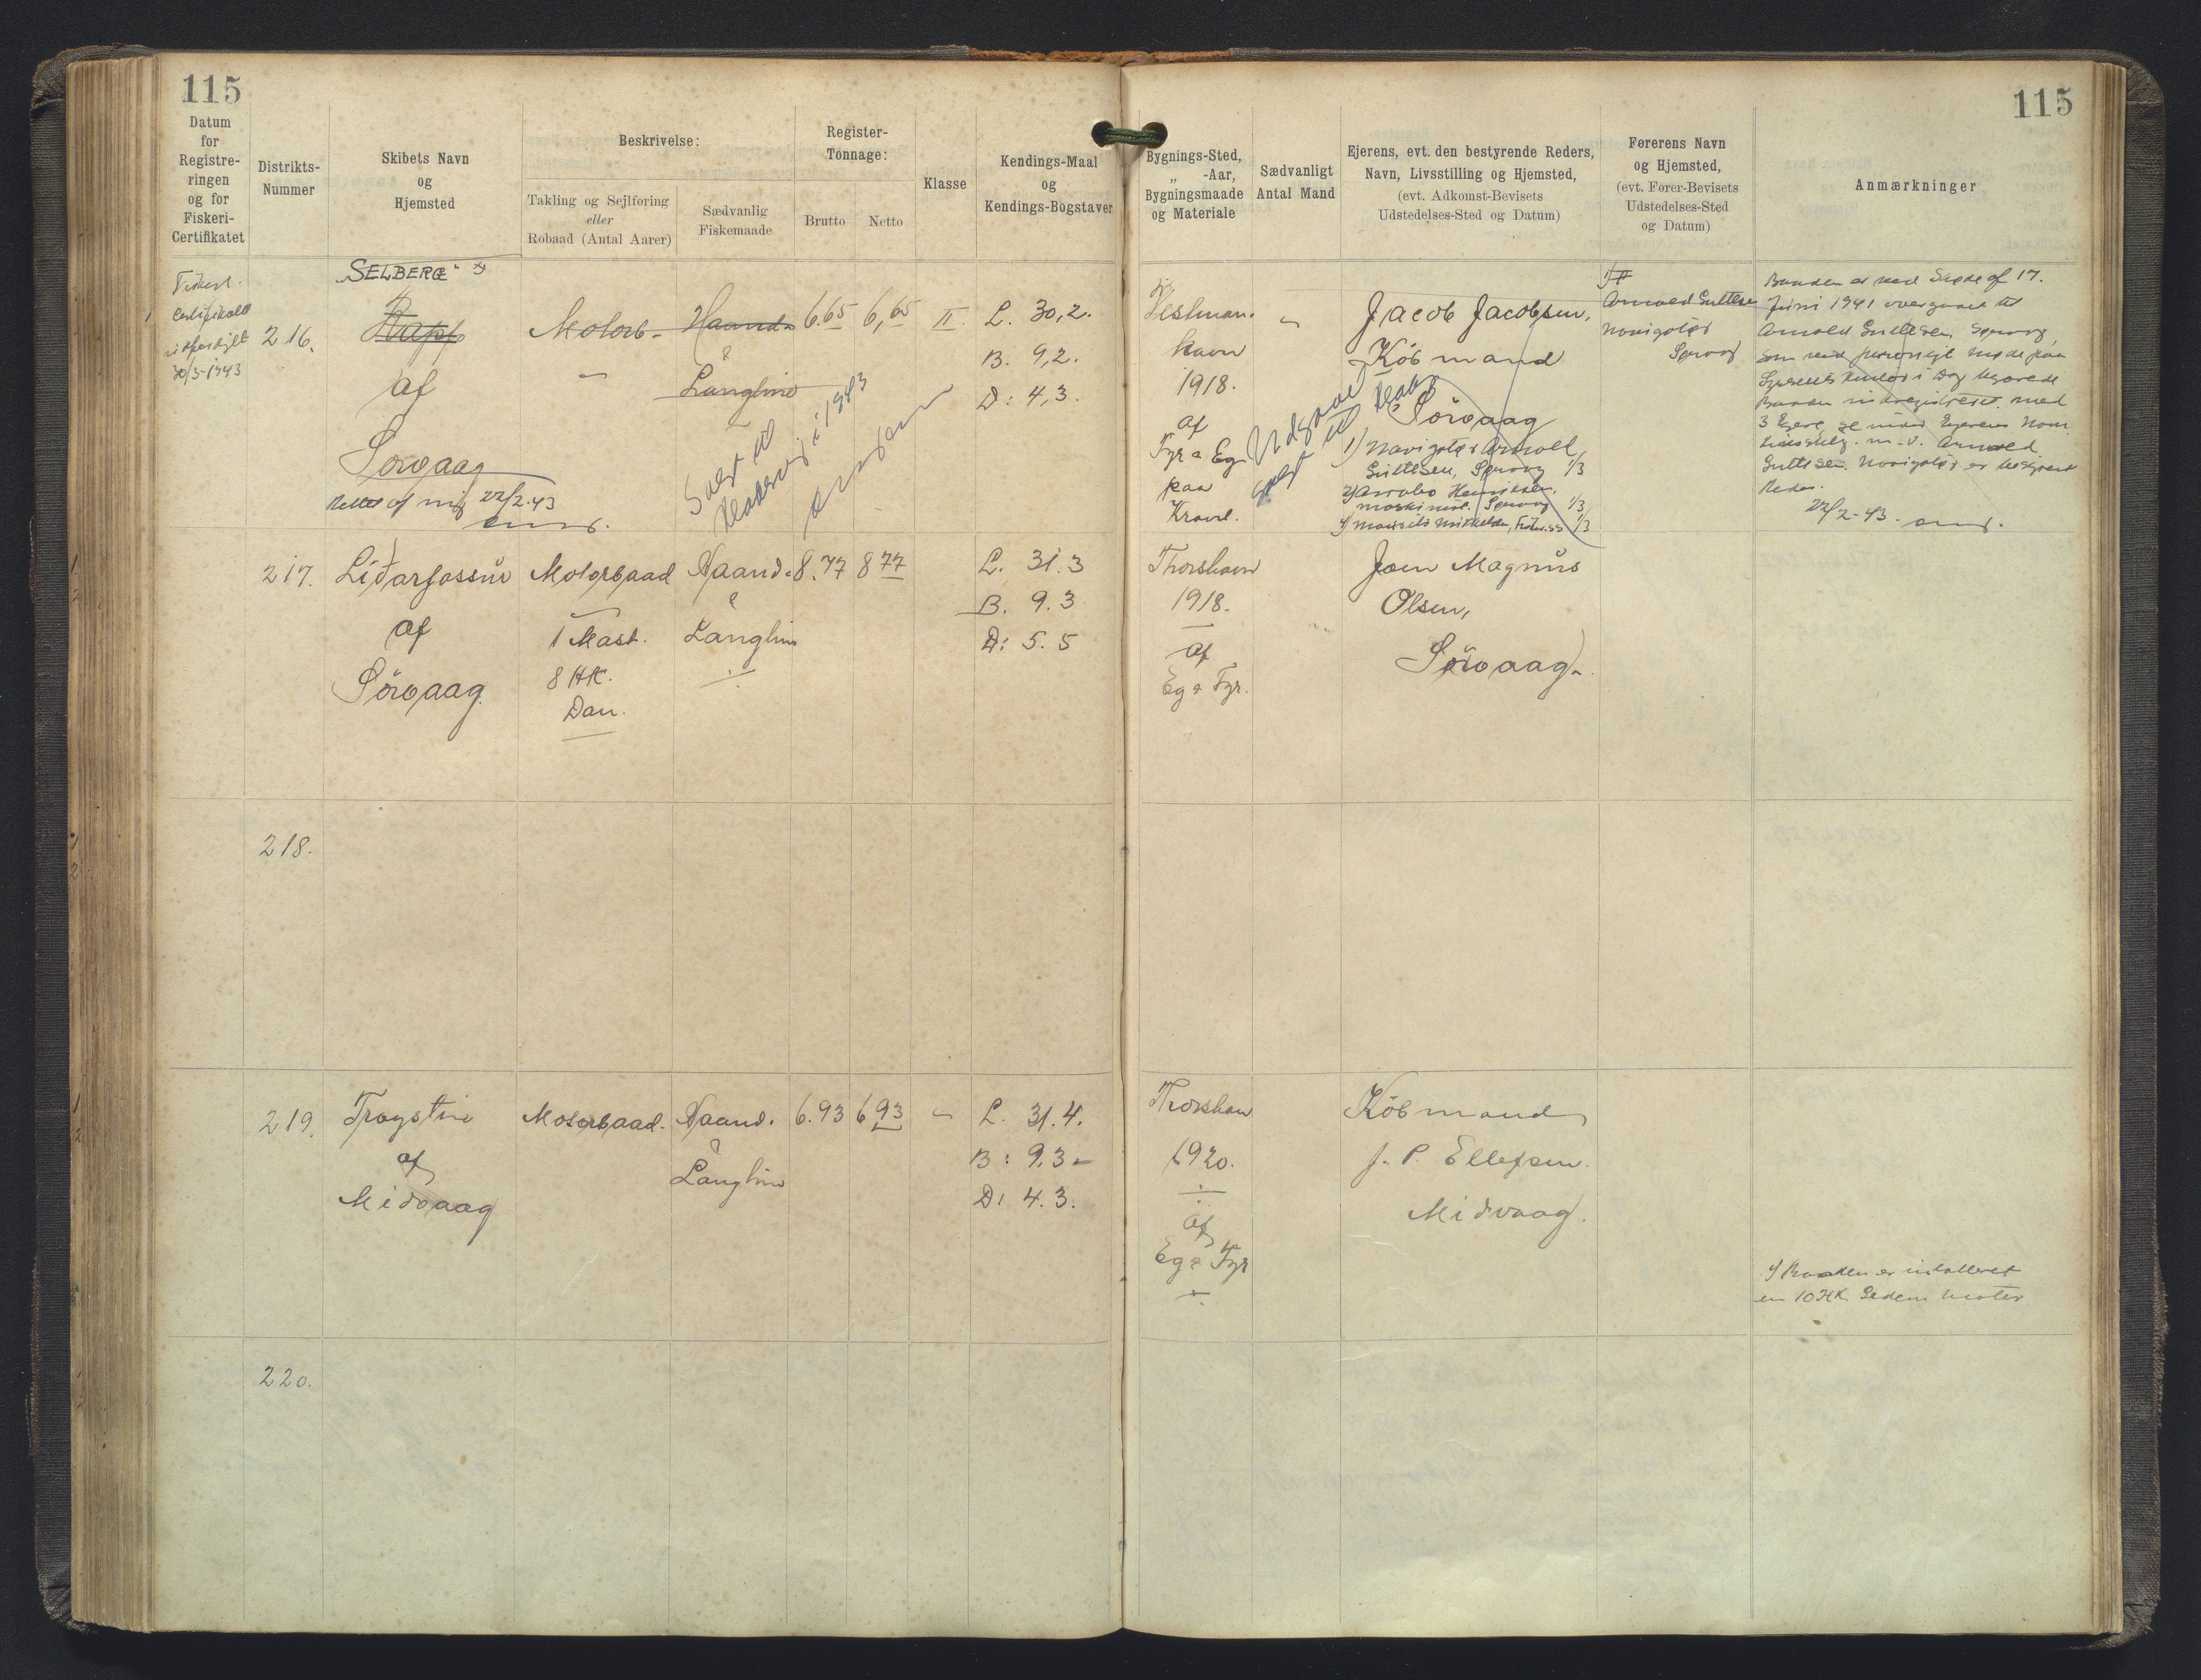 115
115
Datum
for
Registre-
ringen
og for
Fiskeri-
Certifikatet
Distrikts-
Nummer
Skibets Navn
og
Hjemsted
Beskrivelse:
Takling og Sejlføring
eller
Robaad (Antal Aarer)
Sædvanlig
Fiskemaade
Register-
Tonnage:
Brutto
Netto
Klasse
Kendings-Maal
og
Kendings-Bogstaver
Bygnings-Sted,
„ -Aar,
Bygningsmaade
og Materiale
Sædvanligt
Antal Mand
Ejerens, evt. den bestyrende Reders,
Navn, Livsstilling og Hjemsted,
(evt. Adkomst-Bevisets
Udstedelses-Sted og Datum)
Førerens Navn
og Hjemsted,
(evt. Fører-Bevisets
Udstedelses-Sted
og Datum)
Anmærkninger
30/3-1943
216.
"SELBERG"
Rapp
af
Sörvaag
Rettet af mig 22/2.43
Motorb-
Haand-
&
Langline
Solgt til
i 1943
6.65
6,65
II
L. 30,2.
B. 9,2.
D: 4,3.
Vestman-
havn
1918.
af
Fyr & Eg
paa
Kravl.
Udgaaet
solgt til
Jacob Jacobsen,
Köbmand
Sörvaag
1) Navigatør Arnold
1/3
1/3
1/3
Navigatør
Baaden er ved Skøde af 17.
Juni 1941 overgaaet til
Arnold
som ved personligt Møde paa
Kontor i Dag begærede
Baaden med
3 Ejere,
Arnold
Navigatør er bestyrende
Reder.
22/2-43.
217.
Liðarfossur
af
Sörvaag.
Motorbaad
1 Mast.
8 HK.
Dan.
Haand-
&
Langline
8.77
8 77
L. 31.3
B. 9.3
D: 5.5
Thorshavn
1918.
af
Eg & Fyr.
Joen Magnus
Olsen,
Sörvaag-
218.
219.
Troystin
af
Midvaag
Motorbaad.
Haand.
&
Langline
6.93
6 93
L. 31.4.
B: 9.3-
D: 4.3.
Thorshavn
1920.
af
Eg & Fyr
Köbmand
J. P. Ellefsen.
Midvaag.
I Baaden er installeret
en 10 HK. Motor
220.